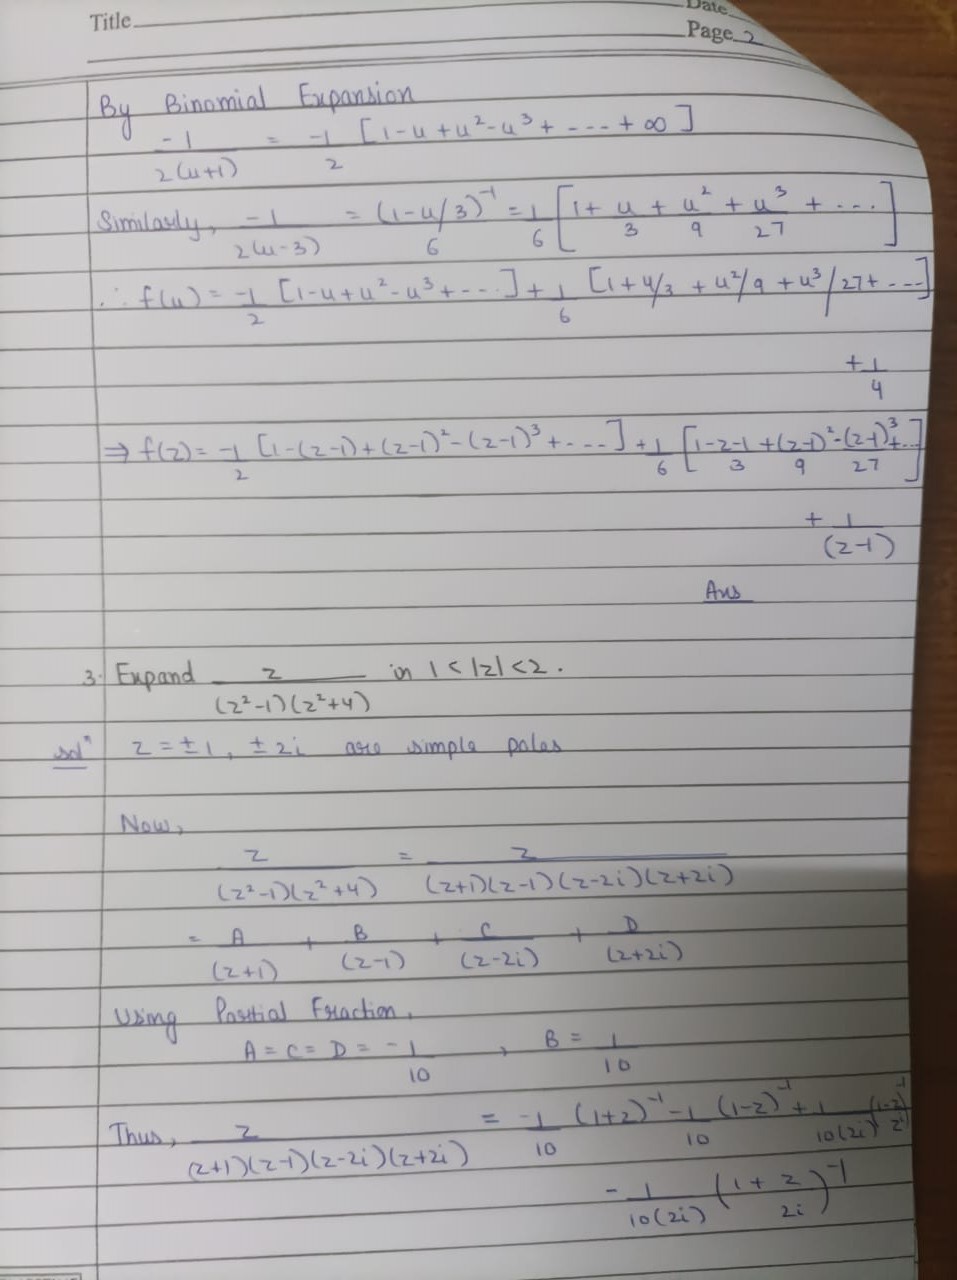 Title
Date
Page 2
By Binomial Expansion
-1/2(u+1) = -1/2 [1-u+u²-u³+----+∞]
Similarly, -1/2(u-3) = (1-u/3)⁻¹/6 = 1/6 [1+u/3+u²/9+u³/27+...]
∴ f(u) = -1/2 [1-u+u²-u³+---] + 1/6 [1+u/3+u²/9+u³/27+---]
+1/4
⇒ f(z) = -1/2 [1-(z-1)+(z-1)²-(z-1)³+----] + 1/6 [1-z-1/3+(z-1)²/9-(z-1)³/27+..]
+ 1/(z-1)
Ans
3. Expand z/(z²-1)(z²+4) in 1<|z|<2.
solⁿ z = ±1, ±2i are simple poles
Now,
z/(z²-1)(z²+4) = z/(z+1)(z-1)(z-2i)(z+2i)
= A/(z+1) + B/(z-1) + C/(z-2i) + D/(z+2i)
Using Partial Fraction,
A = C = D = -1/10, B = 1/10
Thus, z/(z+1)(z-1)(z-2i)(z+2i) = -1/10 (1+z)⁻¹ -1/10 (1-z)⁻¹ + 1/10(2i) (1-z/2i)⁻¹
- 1/10(2i) (1+z/2i)⁻¹